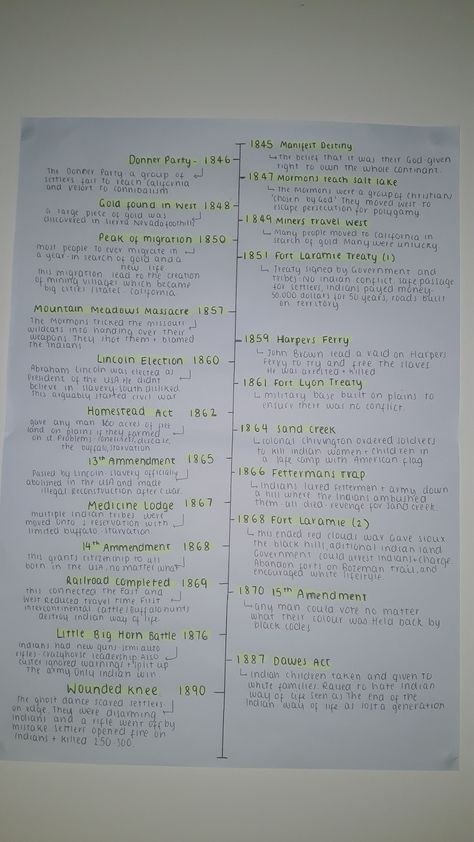 1845 Manifest Destiny
↳ The belief that it was their God-given
right to own the whole continant.
Donner Party - 1846
The Donner Party a group of
settlers fail to reach California
and resort to cannibalism
1847 Mormons reach salt lake
↳ The mormons were a group of christian
'chosen by God' They moved west to
escape persecution for polygamy
Gold found in West 1848
a large piece of gold was
discovered in Sierra Nevada (foothill)
1849 Miners travel west
↳ Many people moved to california in
search of gold Many were unlucky
Peak of migration 1850
most people to ever migrate in
a year-in search of gold and a
new life
this migration lead to the creation
of mining villages which became
big cities / states - california
1851 Fort Laramie Treaty (1)
↳ Treaty signed by Government and
tribes- No indian conflict, safe passage
for settlers, indians payed money-
50,000 dollars for 50 years, roads built
on territory
Mountain Meadows Massacre 1857
The Mormons tricked the missouri
wildcats into handing over their
weapons They shot them + blamed
the Indians
1859 Harpers Ferry
↳ John Brown lead a raid on Harpers
Ferry to try and free the slaves
He was arrested + killed
Lincoln Election 1860
Abraham Lincoln was elected as
President of the USA He didnt
believe in slavery-south disliked
This arguably started civil war
1861 Fort Lyon Treaty
↳ military base built on plains to
ensure there was no conflict
Homestead Act 1862
gave any man 160 acres of free
land on plains if they farmed
on it Problems: loneliness, disease,
the buffalo, starvation
1864 Sand Creek
↳ colonal chivington ordered soldiers
to kill indian women + children in
a safe camp with American flag
13th Ammendment 1865
Passed by Lincoln slavery officially
abolished in the USA and made
illegal Reconstruction after c war
1866 Fettermans Trap
↳ Indians lured Fettermen + army down
a hill where the Indians ambushed
them all died - revenge for sand creek
Medicine Lodge 1867
multiple indian tribes were
moved onto 2 reservation with
limited buffalo - starvation
1868 Fort Laramie (2)
↳ this ended red clouds war Gave sioux
the black hill, aditional indian land
Government could arrest indians + charge
Abandon forts on Bozeman Trail, and
encouraged white lifestyle
14th Ammendment 1868
this grants citizenship to all
born in the USA, no matter what
Railroad completed 1869
this connected the East and
West Reduced travel time First
intercontinental cattle / Buffalo hunts
destroy indian way of life
1870 15th Amendment
↳ any man could vote no matter
what their colour was Held back by
black codes
Little Big Horn Battle 1876
Indians had new guns-semi auto
rifles - crazyhorse leadership Also
custer ignored warnings + split up
the army Only indian win
1887 Dawes Act
↳ Indian children taken and given to
white families Raised to hate Indian
way of life Seen as the end of the
Indian way of life as lost a generation
Wounded Knee 1890
The ghost dance scared settlers
on edge They were disarming
Indians and a rifle went off by
mistake settlers opened fire on
Indians + killed 250-300